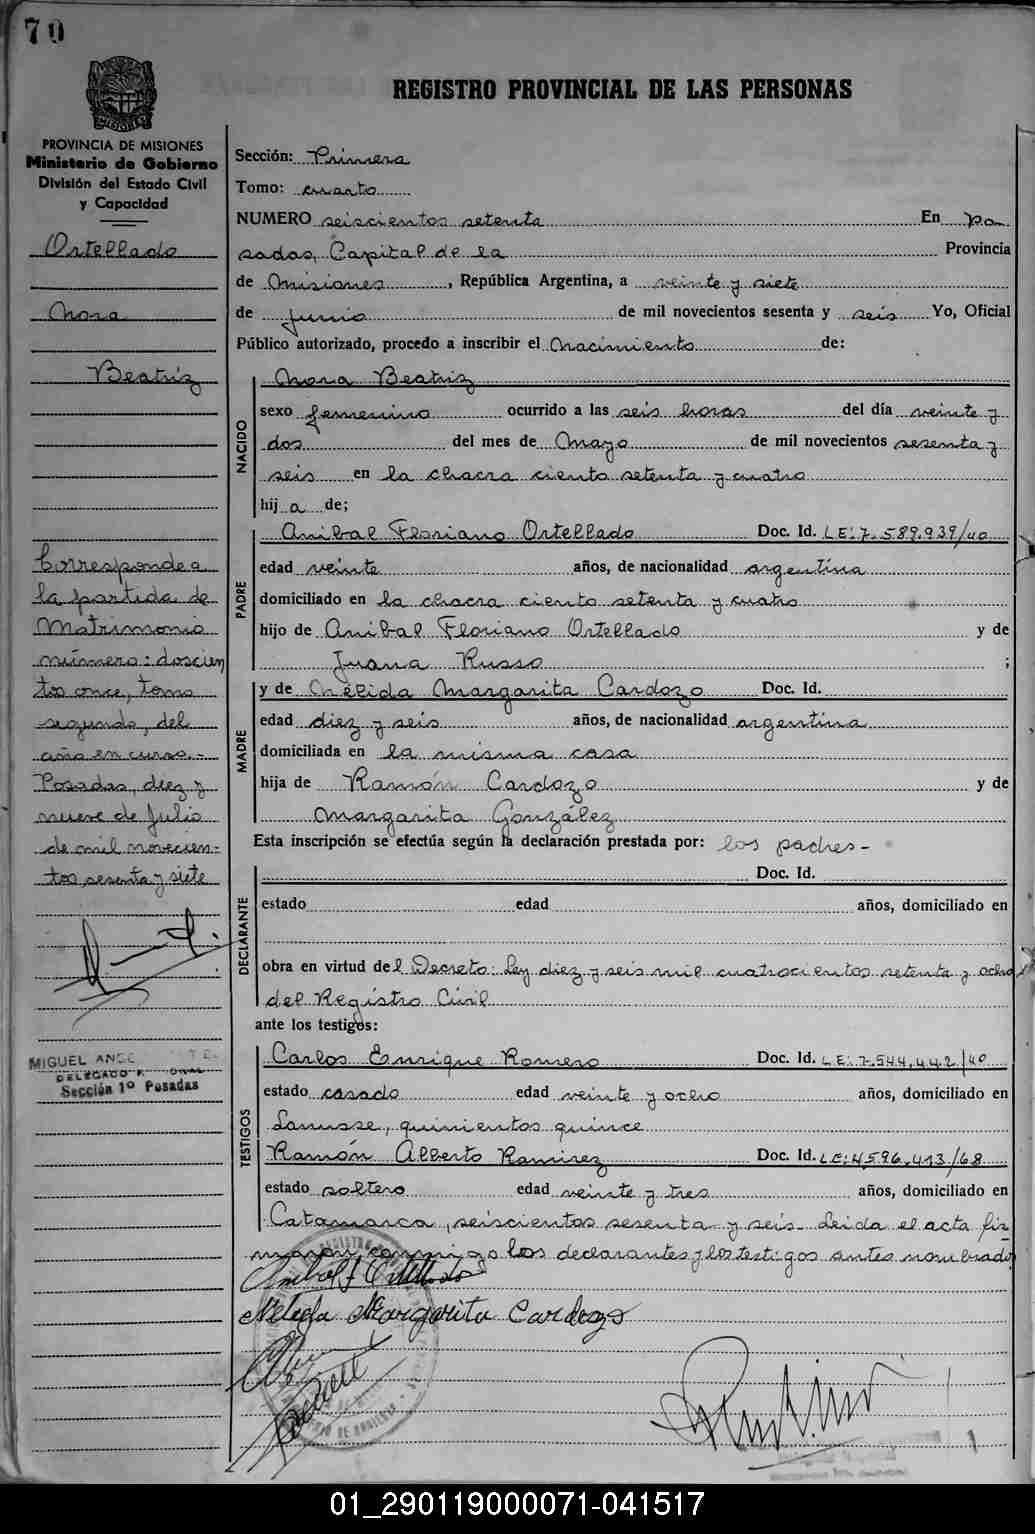 70
REGISTRO PROVINCIAL DE LAS PERSONAS
PROVINCIA DE MISIONES
Ministerio de Gobierno
División del Estado Civil
y Capacidad
Ortellado
Nora
Beatriz
Corresponde a
la partida de
Matrimonio
número: doscien
tos once, tomo
segundo, del
año en curso.-
Posadas, diez y
nueve de Julio
de mil novecien-
tos sesenta y siete
MIGUEL ANGE
DELEGADO
Sección 1º Posadas
Sección: Primera
Tomo: cuarto
NUMERO seiscientos setenta En Po
sadas, Capital de la Provincia
de Misiones, República Argentina, a veinte y siete
de Junio de mil novecientos sesenta y seis Yo, Oficial
Público autorizado, procedo a inscribir el Nacimiento de:
NACIDO
Nora Beatriz
sexo femenino ocurrido a las seis horas del día veinte y
dos del mes de Mayo de mil novecientos sesenta y
seis en la chacra ciento setenta y cuatro
hij a de;
PADRE
Anibal Floriano Ortellado Doc. Id. LE: 7.589.939/40
edad veinte años, de nacionalidad argentina
domiciliado en la chacra ciento setenta y cuatro
hijo de Anibal Floriano Ortellado y de
Juana Russo ;
MADRE
y de Nélida Margarita Cardozo Doc. Id.
edad diez y seis años, de nacionalidad argentina
domiciliada en la misma casa
hija de Ramón Cardozo y de
Margarita González
Esta inscripción se efectúa según la declaración prestada por: los padres-
DECLARANTE
Doc. Id.
estado edad años, domiciliado en
obra en virtud del Decreto: Ley diez y seis mil cuatrocientos setenta y ocho
del Registro Civil
ante los testigos:
TESTIGOS
Carlos Enrique Romero Doc. Id. LE: 7.544.442/40
estado casado edad veinte y ocho años, domiciliado en
Lanusse, quinientos quince
Ramón Alberto Ramirez Doc. Id. LE: 4596.413/68
estado soltero edad veinte y tres años, domiciliado en
Catamarca, seiscientos sesenta y seis- Leida el acta fir
maron conmigo los declarantes y los testigos antes nombrados
Anibal F Ortellado
Nelida Margarita Cardozo
1
01_290119000071-041517